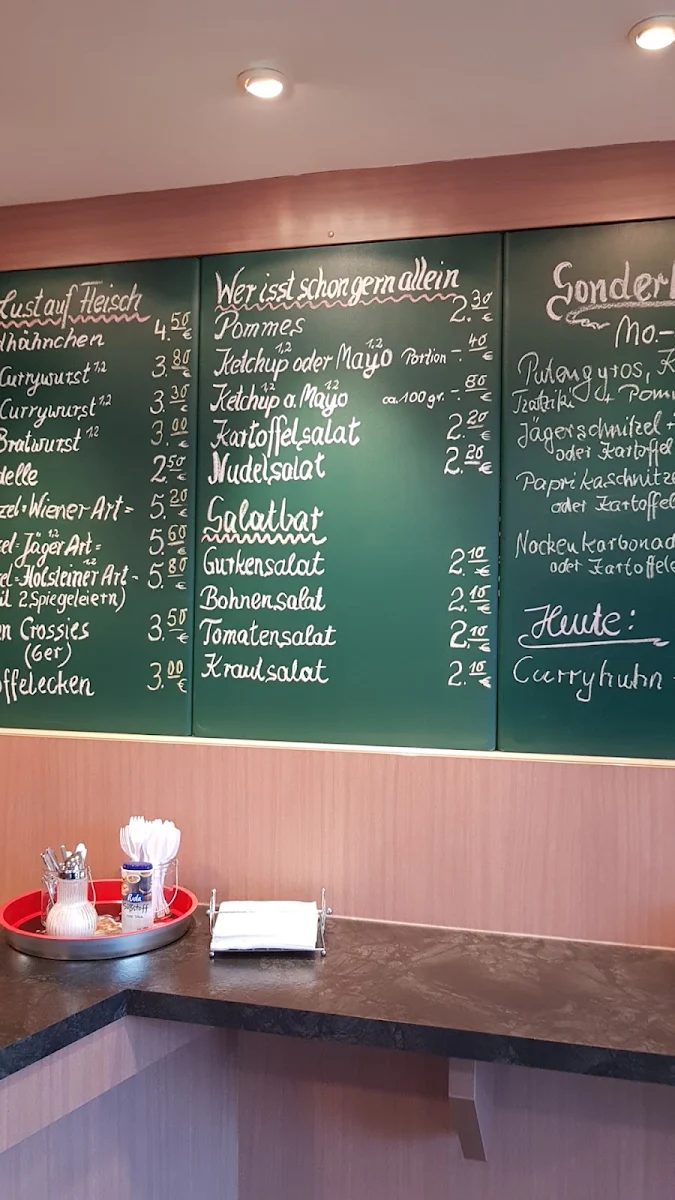 Lust auf Fleisch
dhähnchen 4.50 €
Currywurst 1,2 3.80 €
Currywurst 1,2 3.30 €
Bratwurst 1,2 3.00 €
delle 2.50 €
zel=Wiener Art= 5.20 €
zel=Jäger Art= 1,2 5.60 €
zel=Holsteiner Art- 1,2 5.80 €
it 2.Spiegeleiern)
en Crossies 3.50 €
(6er)
offelecken 3.00 €
Wer isst schon gern allein
Pommes 2.30 €
Ketchup 1,2 oder Mayo 1,2 Portion -.40 €
Ketchup 1,2 o. Mayo 1,2 ca. 100 gr. -.80 €
Kartoffelsalat 2.20 €
Nudelsalat 2.20 €
Salatbar
Gurkensalat 2.10 €
Bohnensalat 2.10 €
Tomatensalat 2.10 €
Krautsalat 2.10 €
Sonder
Mo.-
Putengyros, K
Tzatziki + Pomm
Jägerschnitzel +
oder Kartoffel
Paprikaschnitze
oder Kartoffel
Nackenkarbonad
oder Kartoffel
Heute:
Curryhuhn -